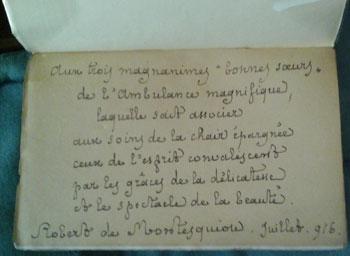 Aux trois magnanimes "bonnes sœurs"
de l'Ambulance magnifique,
laquelle sait associer
aux soins de la chair épargnée
ceux de l'esprit convalescent
par les grâces de la délicatesse
et le spectacle de la beauté.
Robert de Montesquiou. Juillet. 916.